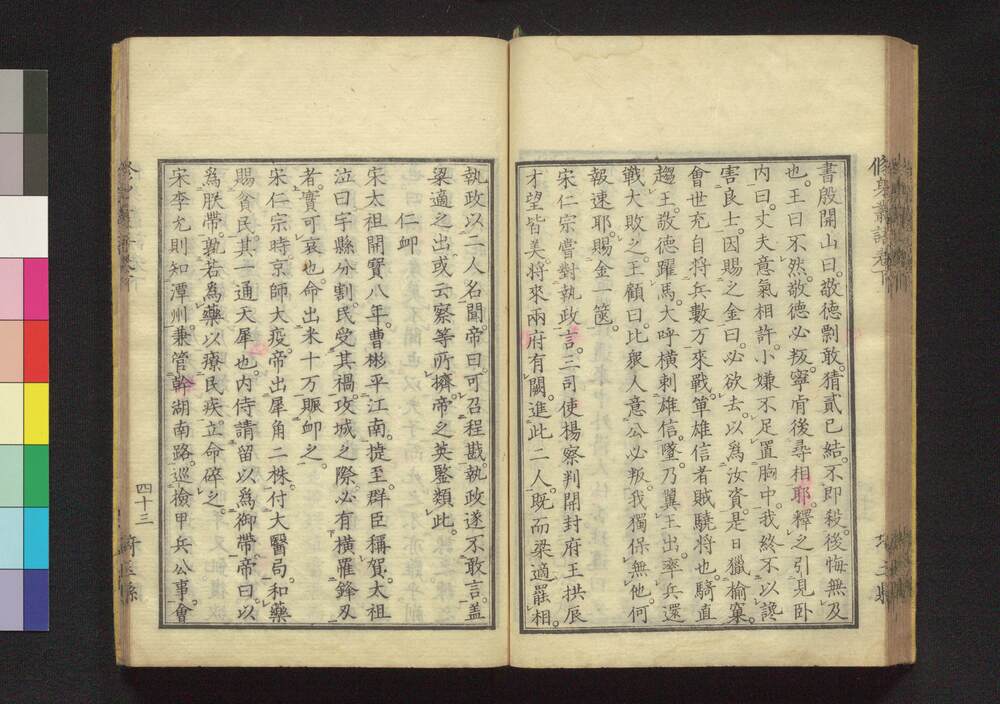 書殷開山曰敬德剽敢猜貳已結不即殺後悔無及
也王曰不然敬德必叛寧肎後尋相耶釋之引見卧
內曰丈夫意氣相許小嫌不足置胸中我終不以讒
害良士因賜之金曰必欲去以爲汝資是日獵榆窠
會世充自將兵數万來戰單雄信者賊驍將也騎直
趨王敬德躍馬大呼橫刺雄信墜乃翼王出率兵還
戰大敗之王顧曰比衆人意公必叛我獨保無他何
報速耶賜金一篋
宋仁宗嘗對執政言三司使楊察判開封府王拱辰
才望皆美將來兩府有闕進此二人既而梁適罷相
執政以二人名聞帝曰可召程戡執政遂不敢言蓋
梁適之出或云察等所擠帝之英鑒類此
仁卹
宋太祖開寶八年曹彬平江南捷至群臣稱賀太祖
泣曰宇縣分割民受其禍攻城之際必有橫罹鋒刃
者實可哀也命出米十万賑卹之
宋仁宗時京師大疫帝出犀角二株付大醫局和藥
賜貧民其一通天犀也內侍請留以爲御帶帝曰以
爲朕帶孰若爲藥以療民疾立命碎之
宋李允則知潭州兼管幹湖南路巡檢甲兵公事會
四十三